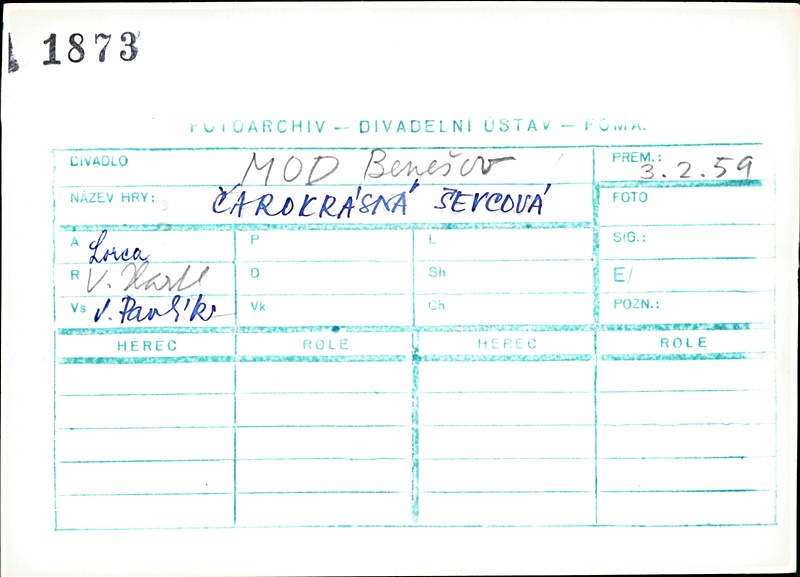 1873
FOTOARCHIV — DIVADELNÍ ÚSTAV — FOMA.
DIVADLO MOD Benešov PREM.: 3.2.59
NÁZEV HRY: ČAROKRÁSNÁ ŠEVCOVÁ FOTO
A Lorca P L SIG.:
R V. D Sh E/
Vs V. Pavlík Vk Ch POZN.:
HEREC ROLE HEREC ROLE